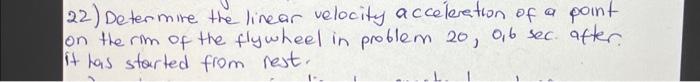 22) Determine the linear velocity acceleration of a point
on the rim of the flywheel in problem 20, 0,6 sec. after.
it has started from rest.